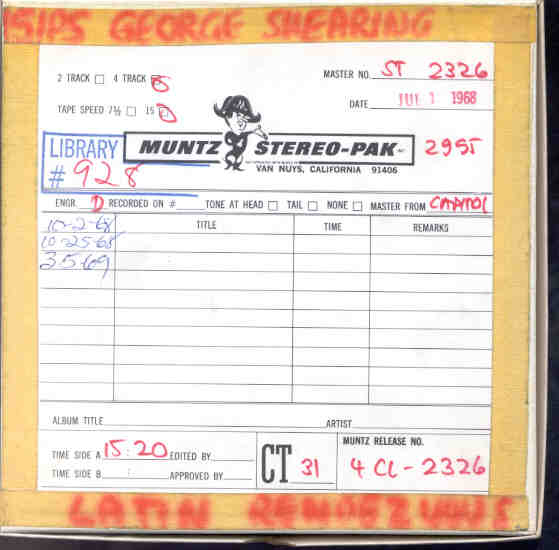 5IPS GEORGE SHEARING
2 TRACK 4 TRACK
MASTER NO. ST 2326
TAPE SPEED 7½ 15
DATE JUL 1 1968
LIBRARY
# 928
MUNTZ STEREO-PAK
VAN NUYS, CALIFORNIA 91406
295T
ENGR. D RECORDED ON # TONE AT HEAD TAIL NONE MASTER FROM CAPITOL
TITLE TIME REMARKS
10-2-68
10-25-68
3-5-69
ALBUM TITLE ARTIST
TIME SIDE A 15:20 EDITED BY
TIME SIDE B : APPROVED BY
CT 31
MUNTZ RELEASE NO.
4 CL-2326
LATIN RENDEZVOUS